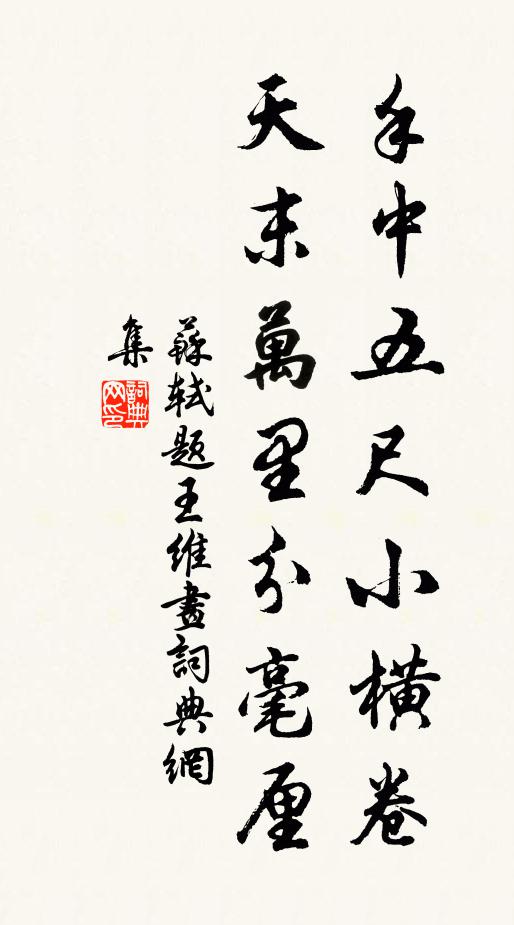 手中五尺小橫卷
天末萬里分毫厘
蘇軾題王維畫詞典網
集
詞典
网印